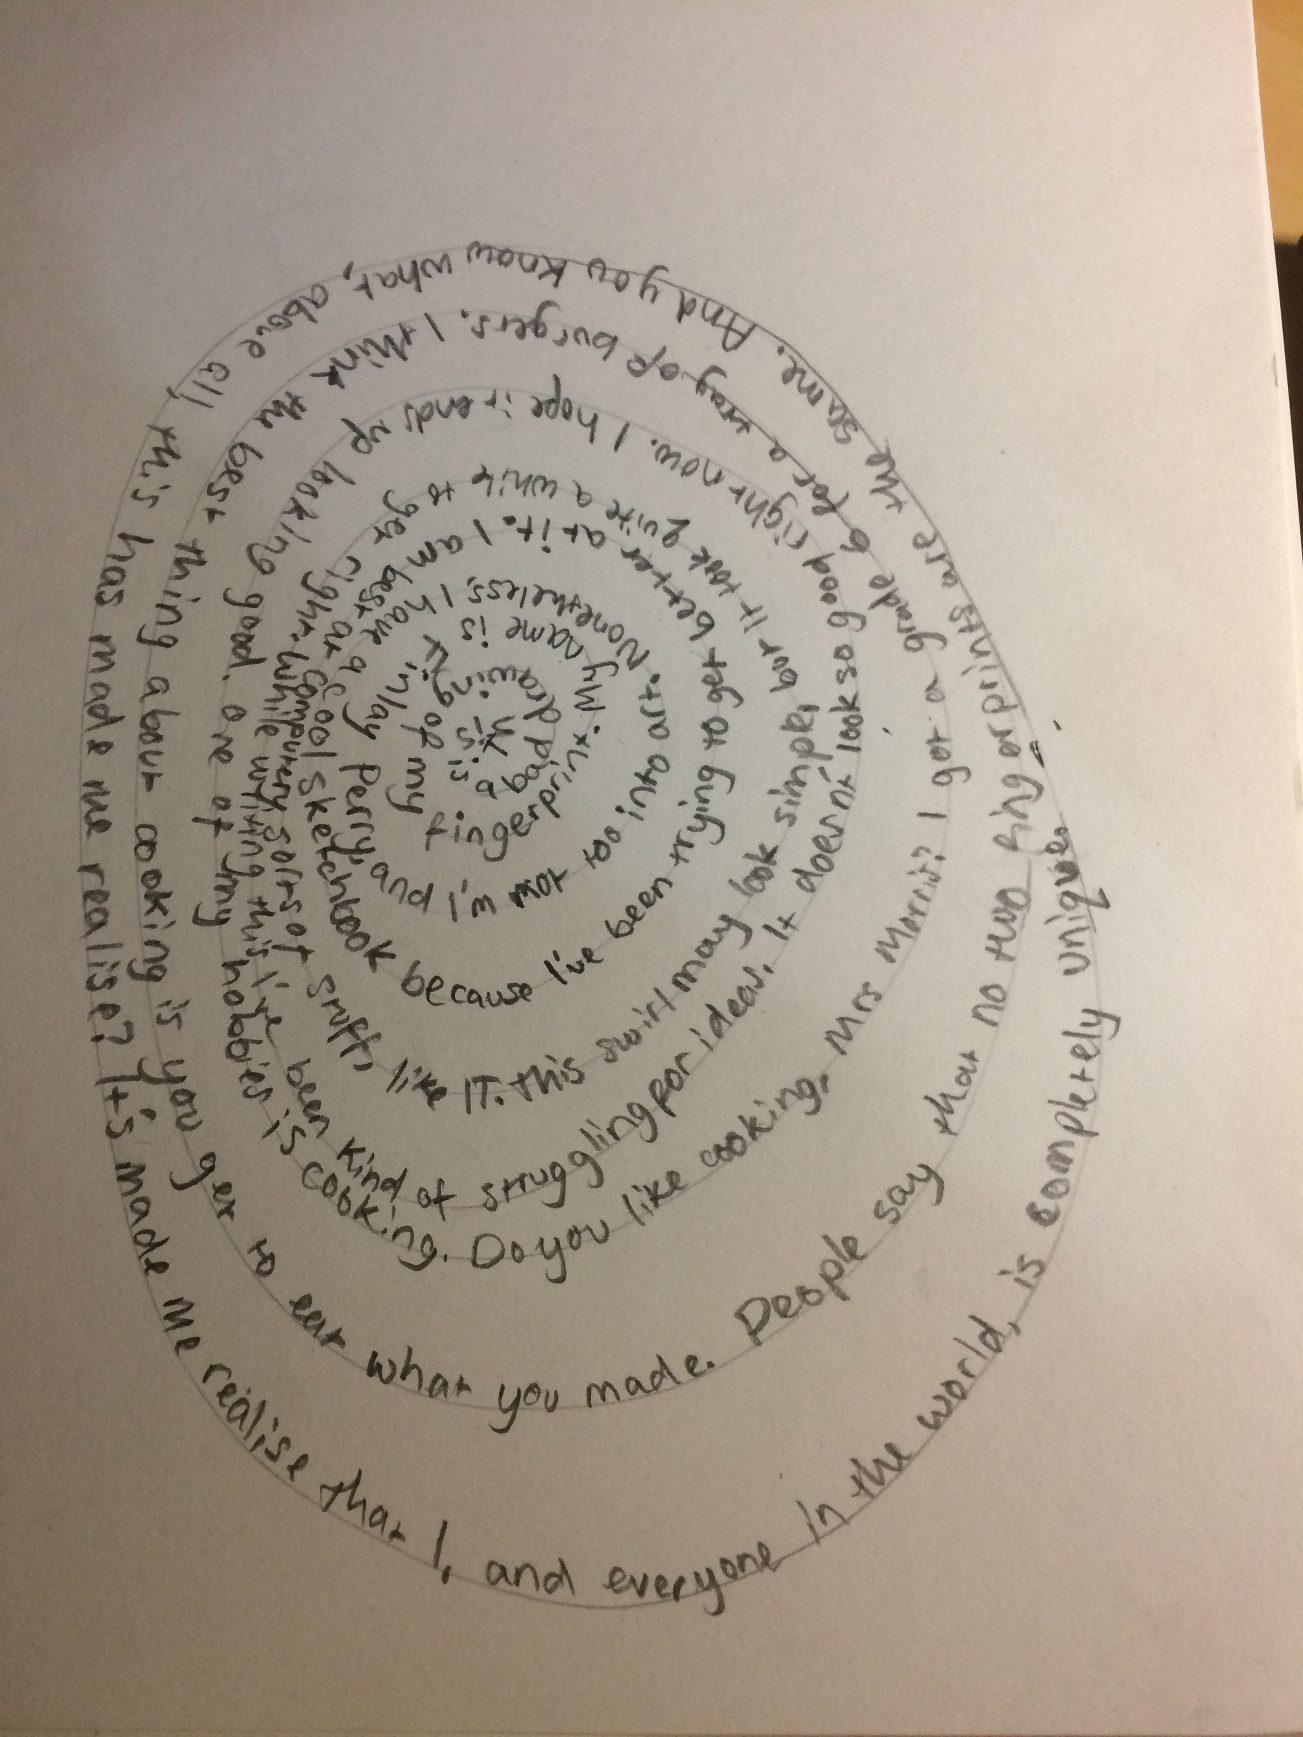 This is a Drawing of my fingerprint. My name is Finlay Perry, and I'm not too into art. Nonetheless, I have a cool sketchbook because I've been trying to get better at it. I am best at computery sorts of stuff, like IT. This swirl may look simple, but it took quite a while to get right. While writing this I've been kind of struggling for ideas. It doesn't look so good right now. I hope it ends up looking good. One of my hobbies is cooking. Do you like cooking, Mrs Morris? I got a grade 6 for a tray of burgers. I think the best thing about cooking is you get to eat what you made. People say that no two fingerprints are the same. And you know what, above all, this has made me realise? It's made me realise that I, and everyone in the world, is completely unique.